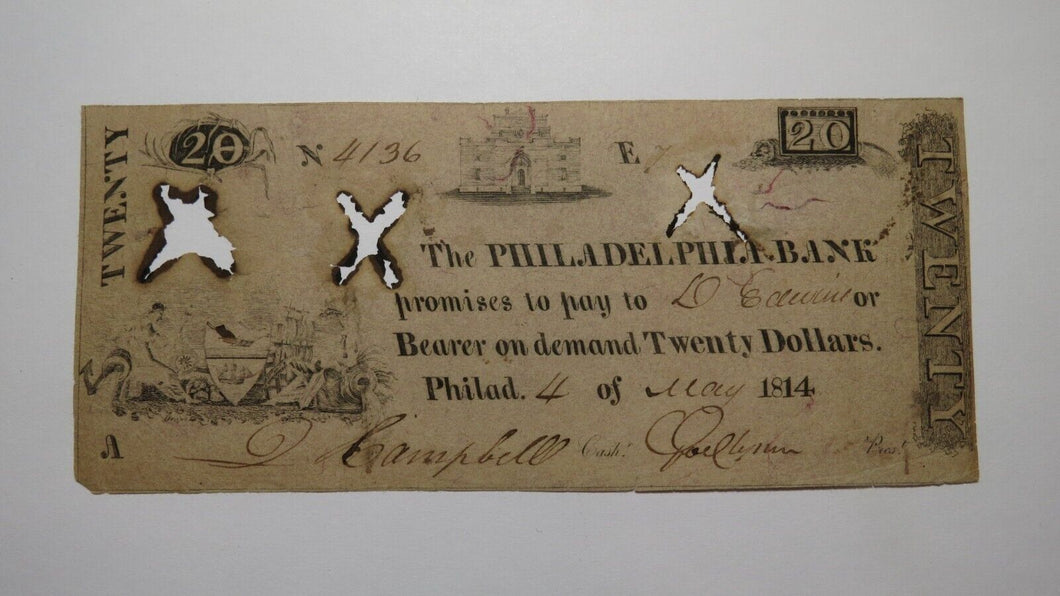 TWENTY
20
No 4136
E
20
TWENTY
The PHILADELPHIA BANK
promises to pay to D Edwin or
Bearer on demand Twenty Dollars.
Philad. 4 of May 1814
A
Campbell Cashr. Presr.